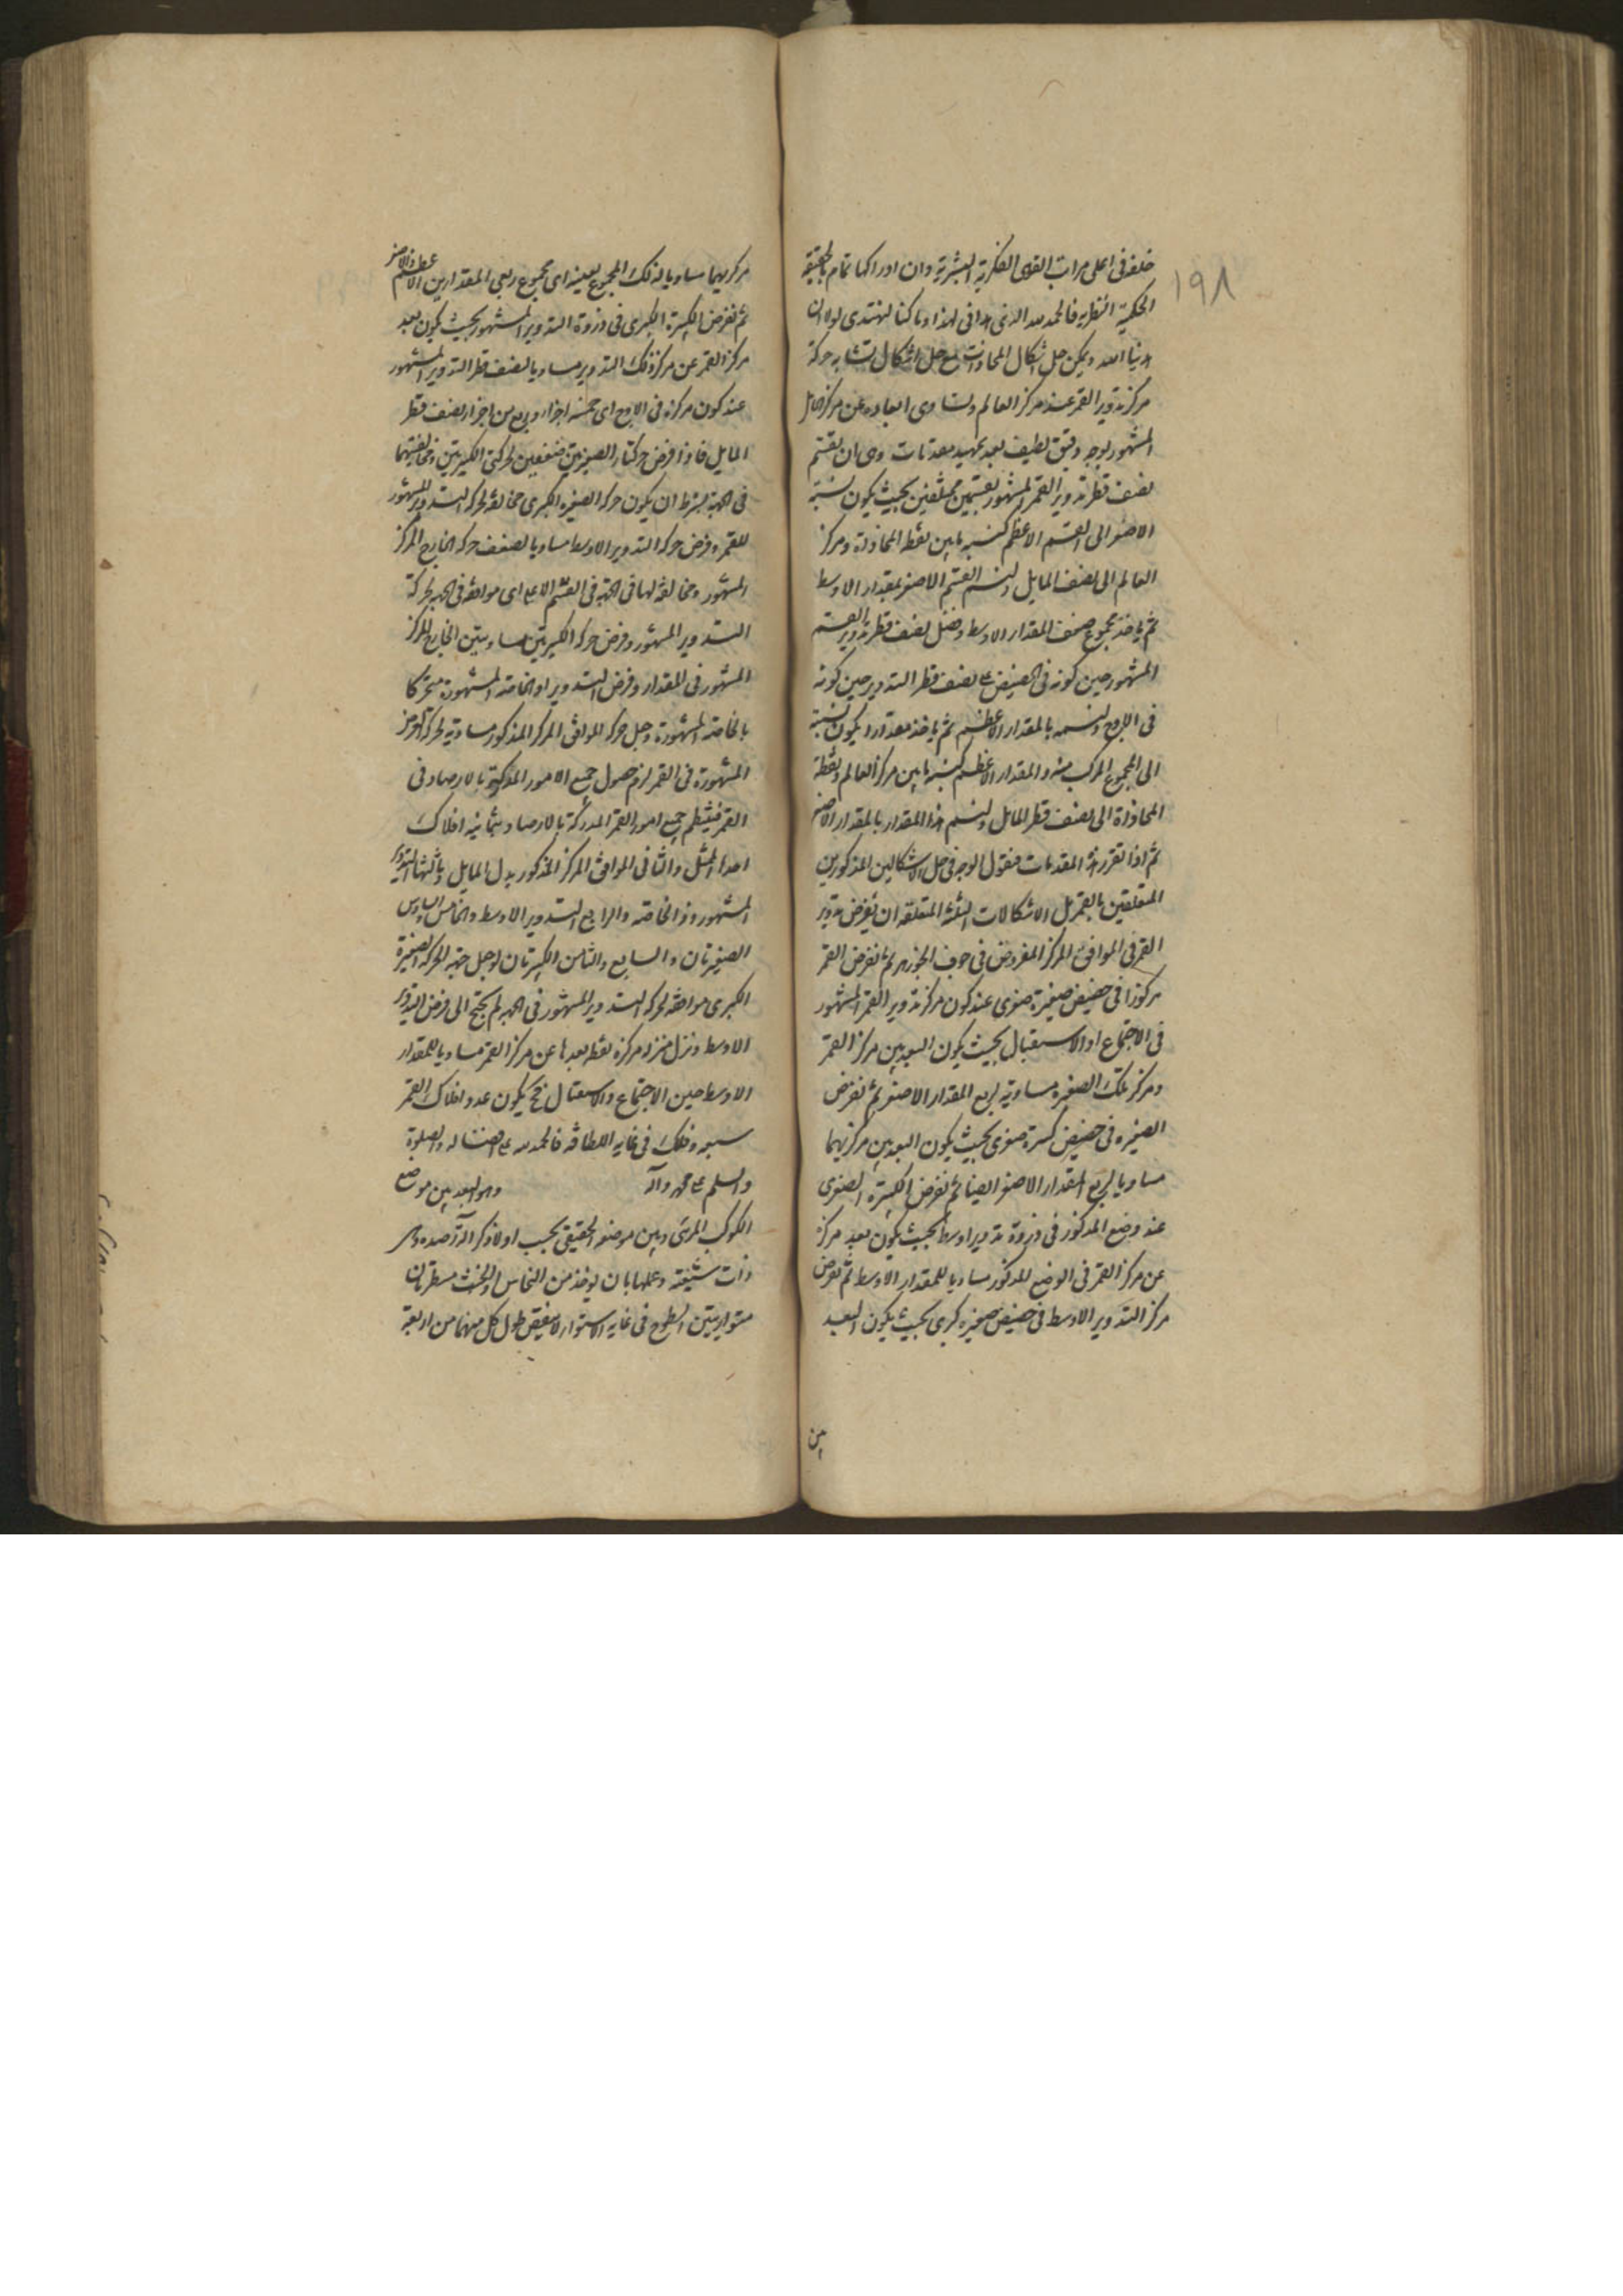 ١٩٨
خلقه فى اعلى مراتب القوى الفكرية البشرية وان ادراكها تمام بالحقيقة
الحكمية النظرية فالحمد لله الذى هدانى لهذا وما كنا لنهتدى لولا ان
هدينا الله ويمكن حل اشكال المحاذات مع حل اشكال تشابه حركة
مركز تدوير القمر عند مركز العالم وتساوى ابعاده عن مركز الحامل
المشهور بوجه دقيق لطيف بعد تمهيد مقدمات وهى ان يقسم
نصف قطر تدوير القمر المشهور بقسمين مختلفين بحيث يكون نسبة
الاصغر الى القسم الاعظم كنسبة ما بين نقطة المحاذاة ومركز
العالم الى نصف المايل ولنسم القسم الاصغر بمقدار الاوسط
ثم ياخذ مجموع ضعف المقدار الاوسط وفضل نصف قطر تدوير القمر
المشهور حين كونه فى الحضيض على نصف قطر التدوير حين كونه
فى الاوج ولنسمه بالمقدار الاعظم ثم ياخذ مقدارا يكون نسبة
الى المجموع المركب منه والمقدار الاعظم كنسبة ما بين مركز العالم ونقطة
المحاذاة الى نصف قطر المايل ولنسم هذا المقدار بالمقدار الاصغر
ثم اذا تقرر هذه المقدمات فنقول الوجه فى حل الاشكالين المذكورين
المتعلقين بالقمر بل الاشكالات الثلثة المتعلقة ان يفرض تدوير
القمر فى الموافق المركز المفروض فى جوف الجوزهر ثم نفرض القمر
مركوزا فى حضيض صغيرة صغرى عند كون مركز تدوير القمر المشهور
فى الاجتماع او الاستقبال بحيث يكون البعد بين مركز القمر
ومركز تلك الصغيرة مساوية لربع المقدار الاصغر ثم نفرض
الصغيرة فى حضيض كبيرة صغرى بحيث يكون البعد بين مركزيهما
مساويا لربع المقدار الاصغر ايضا ثم نفرض الكبيرة الصغرى
عند وضع المذكور فى ذروة تدوير اوسط بحيث يكون بعد مركزه
عن مركز القمر فى الوضع المذكور مساويا للمقدار الاوسط ثم نفرض
مركز التدوير الاوسط فى حضيض صغيرة كبرى بحيث يكون البعد
بين
مركزيهما مساويا لذلك المجموع بعينه اى مجموع ربعى المقدارين الاعظم والاصغر
ثم نفرض الكبيرة الكبرى فى ذروة التدوير المشهور بحيث يكون بعد
مركز القمر عن مركز ذلك التدوير مساويا لنصف قطر التدوير المشهور
عند كون مركزه فى الاوج اى خمسة اجزاء وربع من اجزاء نصف قطر
المايل فاذا فرض حركتا الصغيرتين ضعفين لحركتى الكبيرتين ومخالفتهما
فى الجهة بشرط ان يكون حركة الصغيرة الكبرى مخالفة لحركة التدوير المشهور
للقمر وفرض حركة التدوير الاوسط مساويا لضعف حركة الخارج المركز
المشهور ومخالفة لها فى الجهة فى القسم الاعلى اى موافقة فى الجهة لحركة
التدوير المشهور وفرض حركة الكبيرتين مساويتين للخارج المركز
المشهور فى المقدار وفرض التدوير او الخاصة المشهورة متحركا
بالخاصة المشهورة وجعل حركة الموافق المركز المذكور مساوية لحركة المركز
المشهورة فى القمر لزم حصول جميع الامور المدركة بالارصاد فى
القمر فينتظم جميع امور القمر المدركة بالارصاد بثمانية افلاك
احدها الممثل والثانى الموافق المركز المذكور بدل المايل وثالثها التدوير
المشهور ذو الخاصة والرابع التدوير الاوسط والخامس والسادس
الصغيرتان والسابع والثامن الكبيرتان ولو جعل جهة الحركة الصغيرة
الكبرى موافقة لحركة التدوير المشهور فى الجهة لم يحتج الى فرض التدوير
الاوسط ونزل منزلة مركزه نقطة بعدها عن مركز القمر مساويا للمقدار
الاوسط حين الاجتماع والاستقبال فح يكون عدد افلاك القمر
سبعة وذلك فى غاية اللطافة فالحمد لله على افضاله والصلوة
والسلم على محمد وآله وهو البعد بين موضع
الكوكب المرئى وبين موضعه الحقيقى بحسب اولا ذكر آلة رصده وهى
ذات شعبتين وعملها بان يوخذ من النحاس او الخشب مسطرتان
متوازيتين السطوح فى غاية الاستواء لا ينقص طول كل منهما من اربعة